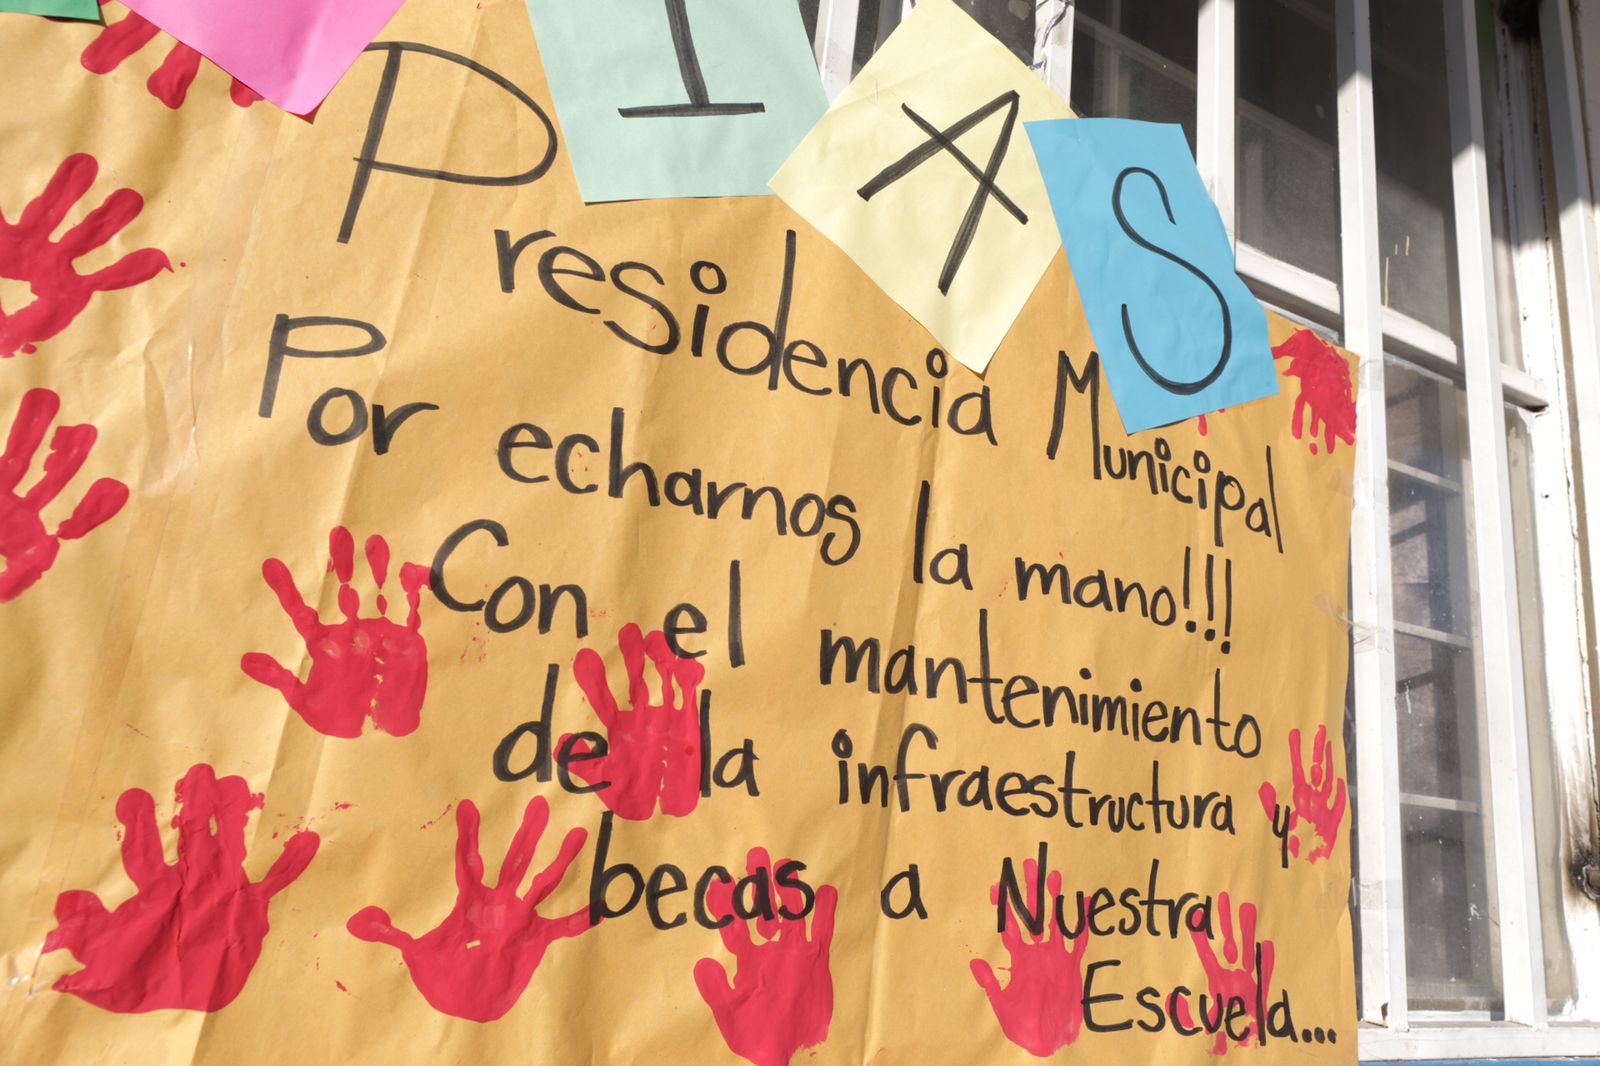 IAS
Presidencia Municipal
Por echarnos la mano!!!
Con el mantenimiento
de la infraestructura y
becas a Nuestra
Escuela...